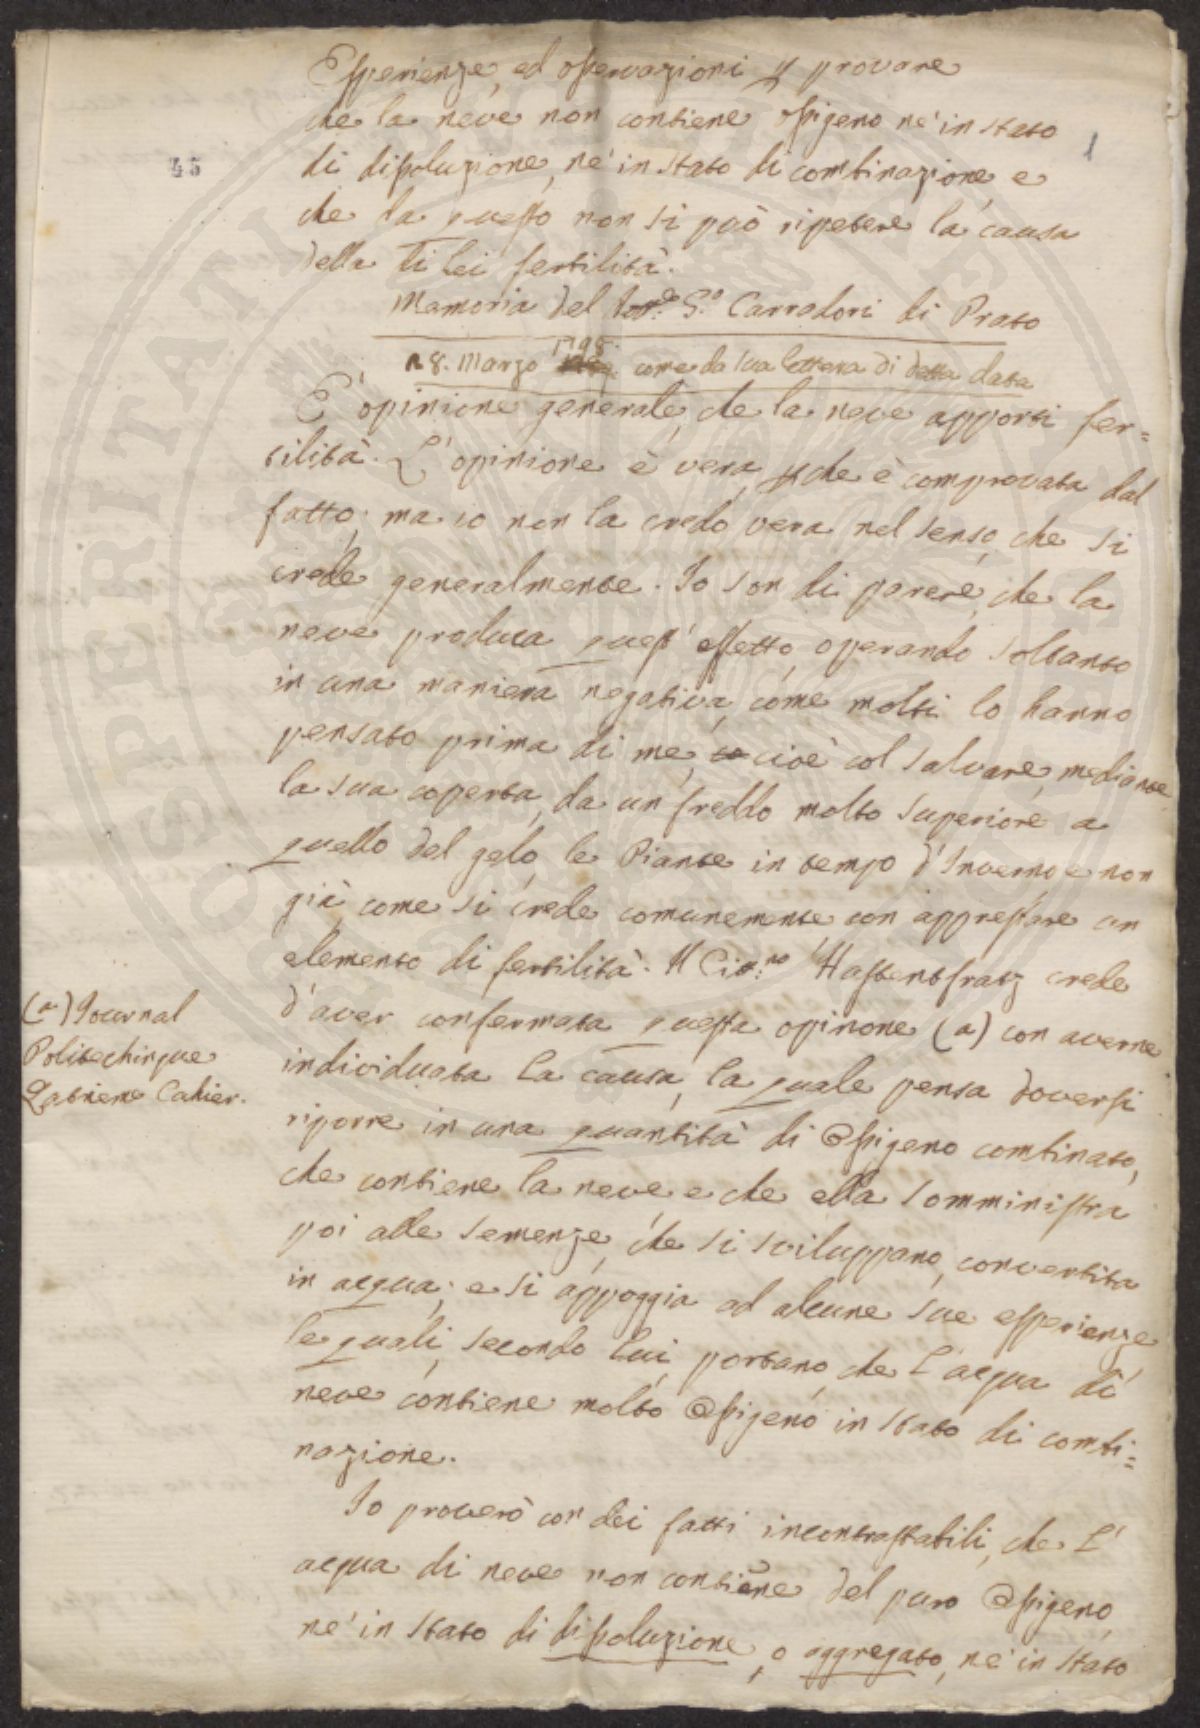 45
1
Esperienze, ed osservazioni p provare
che la neve non contiene ossigeno ne' in stato
di dissoluzione, ne' in stato di combinazione e
che da questo non si può ripetere la causa
della di lei fertilità.
Memoria del Dott.e G.o Carradori di Prato
28. Marzo 1798. come da sua lettera di detta data
E' opinione generale, che la neve apporti fer=
tilità. L'opinione è vera, pche è comprovata dal
fatto; ma io non la credo vera nel senso, che si
crede generalmente. Io son di parere, che la
neve produca quest' effetto, operando soltanto
in una maniera negativa, come molti lo hanno
pensato prima di me, cioè col salvare, mediante
la sua coperta, da un freddo molto superiore a
quello del gelo, le Piante in tempo d'Inverno, e non
già, come si crede comunemente con apprestare un
elemento di fertilità. Il Citt.no Hassentsfratz crede
d'aver confermata questa opinone (a) con averne
individuata la causa, la quale pensa doversi
riporre in una quantità di Ossigeno combinato,
che contiene la neve, e che ella somministra
poi alle semenze, che si sviluppano, convertita
in acqua; e si appoggia ad alcune sue esperienze
le quali, secondo lui, portano, che l'acqua di
neve contiene molto Ossigeno in stato di combi=
nazione.
Io proverò con dei fatti incontrastabili, che l'
acqua di neve non contiene del puro Ossigeno,
ne' in stato di dissoluzione, o aggregato, ne' in stato
(a) Journal
Politechinque
Qatrieme Cahier.